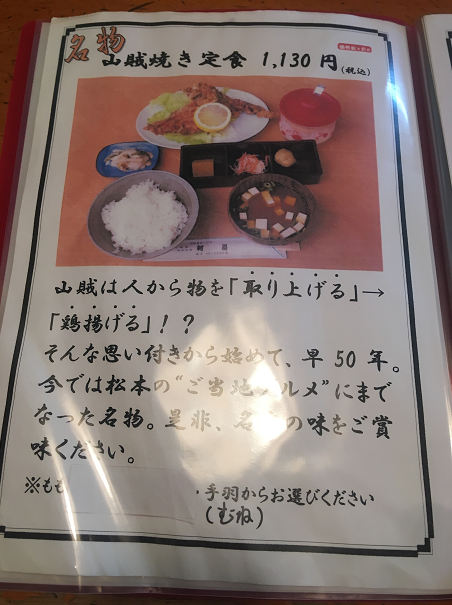 名物
山賊焼き定食 1,130円(税込)
山賊は人から物を「取り上げる」→
「鶏揚げる」!?
そんな思い付きから始めて、早50年。
今では松本の“ご当地グルメ”にまで
なった名物。是非、名 の味をご賞
味ください。
※もも ・手羽からお選びください
(むね)